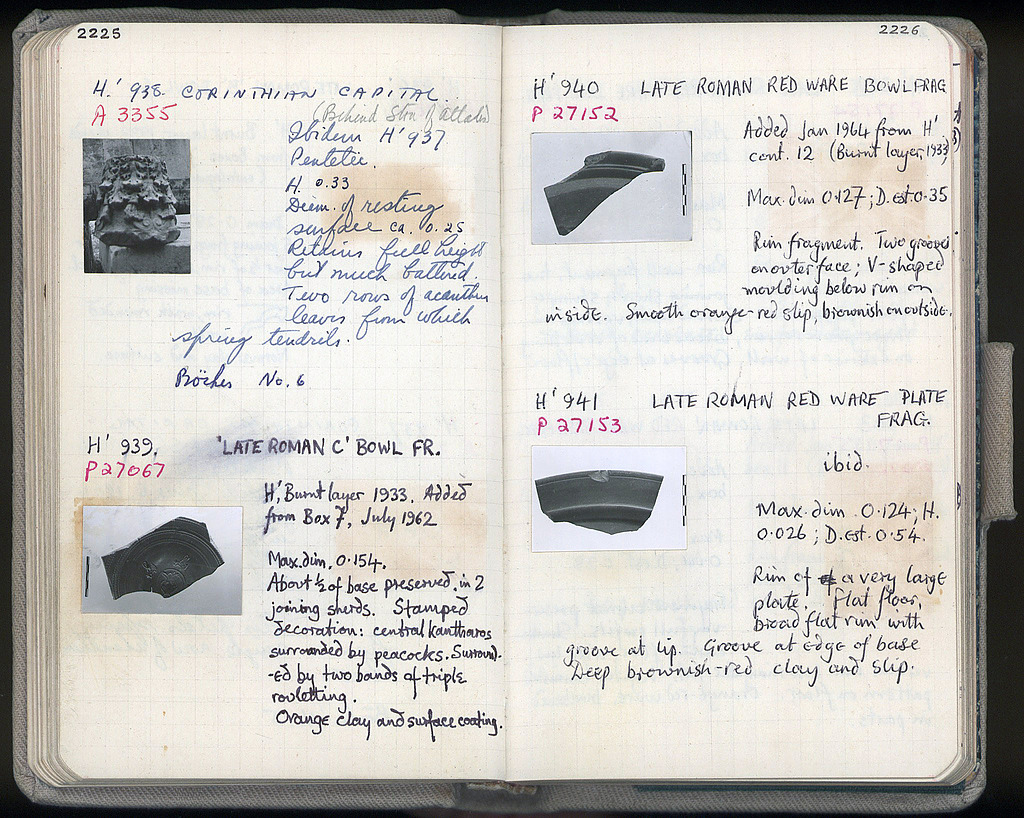 2225
H.' 938. CORINTHIAN CAPITAL.
A 3355
(Behind Stoa of Attalos)
Ibidem H' 937
Pentelic.
H. 0.33
Diam. of resting
surface ca. 0.25
Retains full height
but much battered.
Two rows of acanthus
leaves from which
spring tendrils.
No. 6
H' 939.
'LATE ROMAN C' BOWL FR.
P 27067
H', Burnt layer 1933. Added
from Box 7, July 1962
Max.dim. 0.154.
About ½ of base preserved, in 2
joining sherds. Stamped
decoration: central kantharos
surrounded by peacocks. Surround-
-ed by two bands of triple
rouletting.
Orange clay and surface coating.
2226
H' 940 LATE ROMAN RED WARE BOWL FRAG
P 27152
Added Jan 1964 from H'
cont. 12 (Burnt layer, 1933)
Max.dim 0.127; D.est. 0.35
Rim fragment. Two grooves
on outer face; V-shaped
moulding below rim on
inside. Smooth orange-red slip, brownish on outside.
H' 941 LATE ROMAN RED WARE PLATE
FRAG.
P 27153
ibid.
Max.dim 0.124; H.
0.026; D.est. 0.54.
Rim of a very large
plate. Flat floor,
broad flat rim with
groove at lip. Groove at edge of base
Deep brownish-red clay and slip.